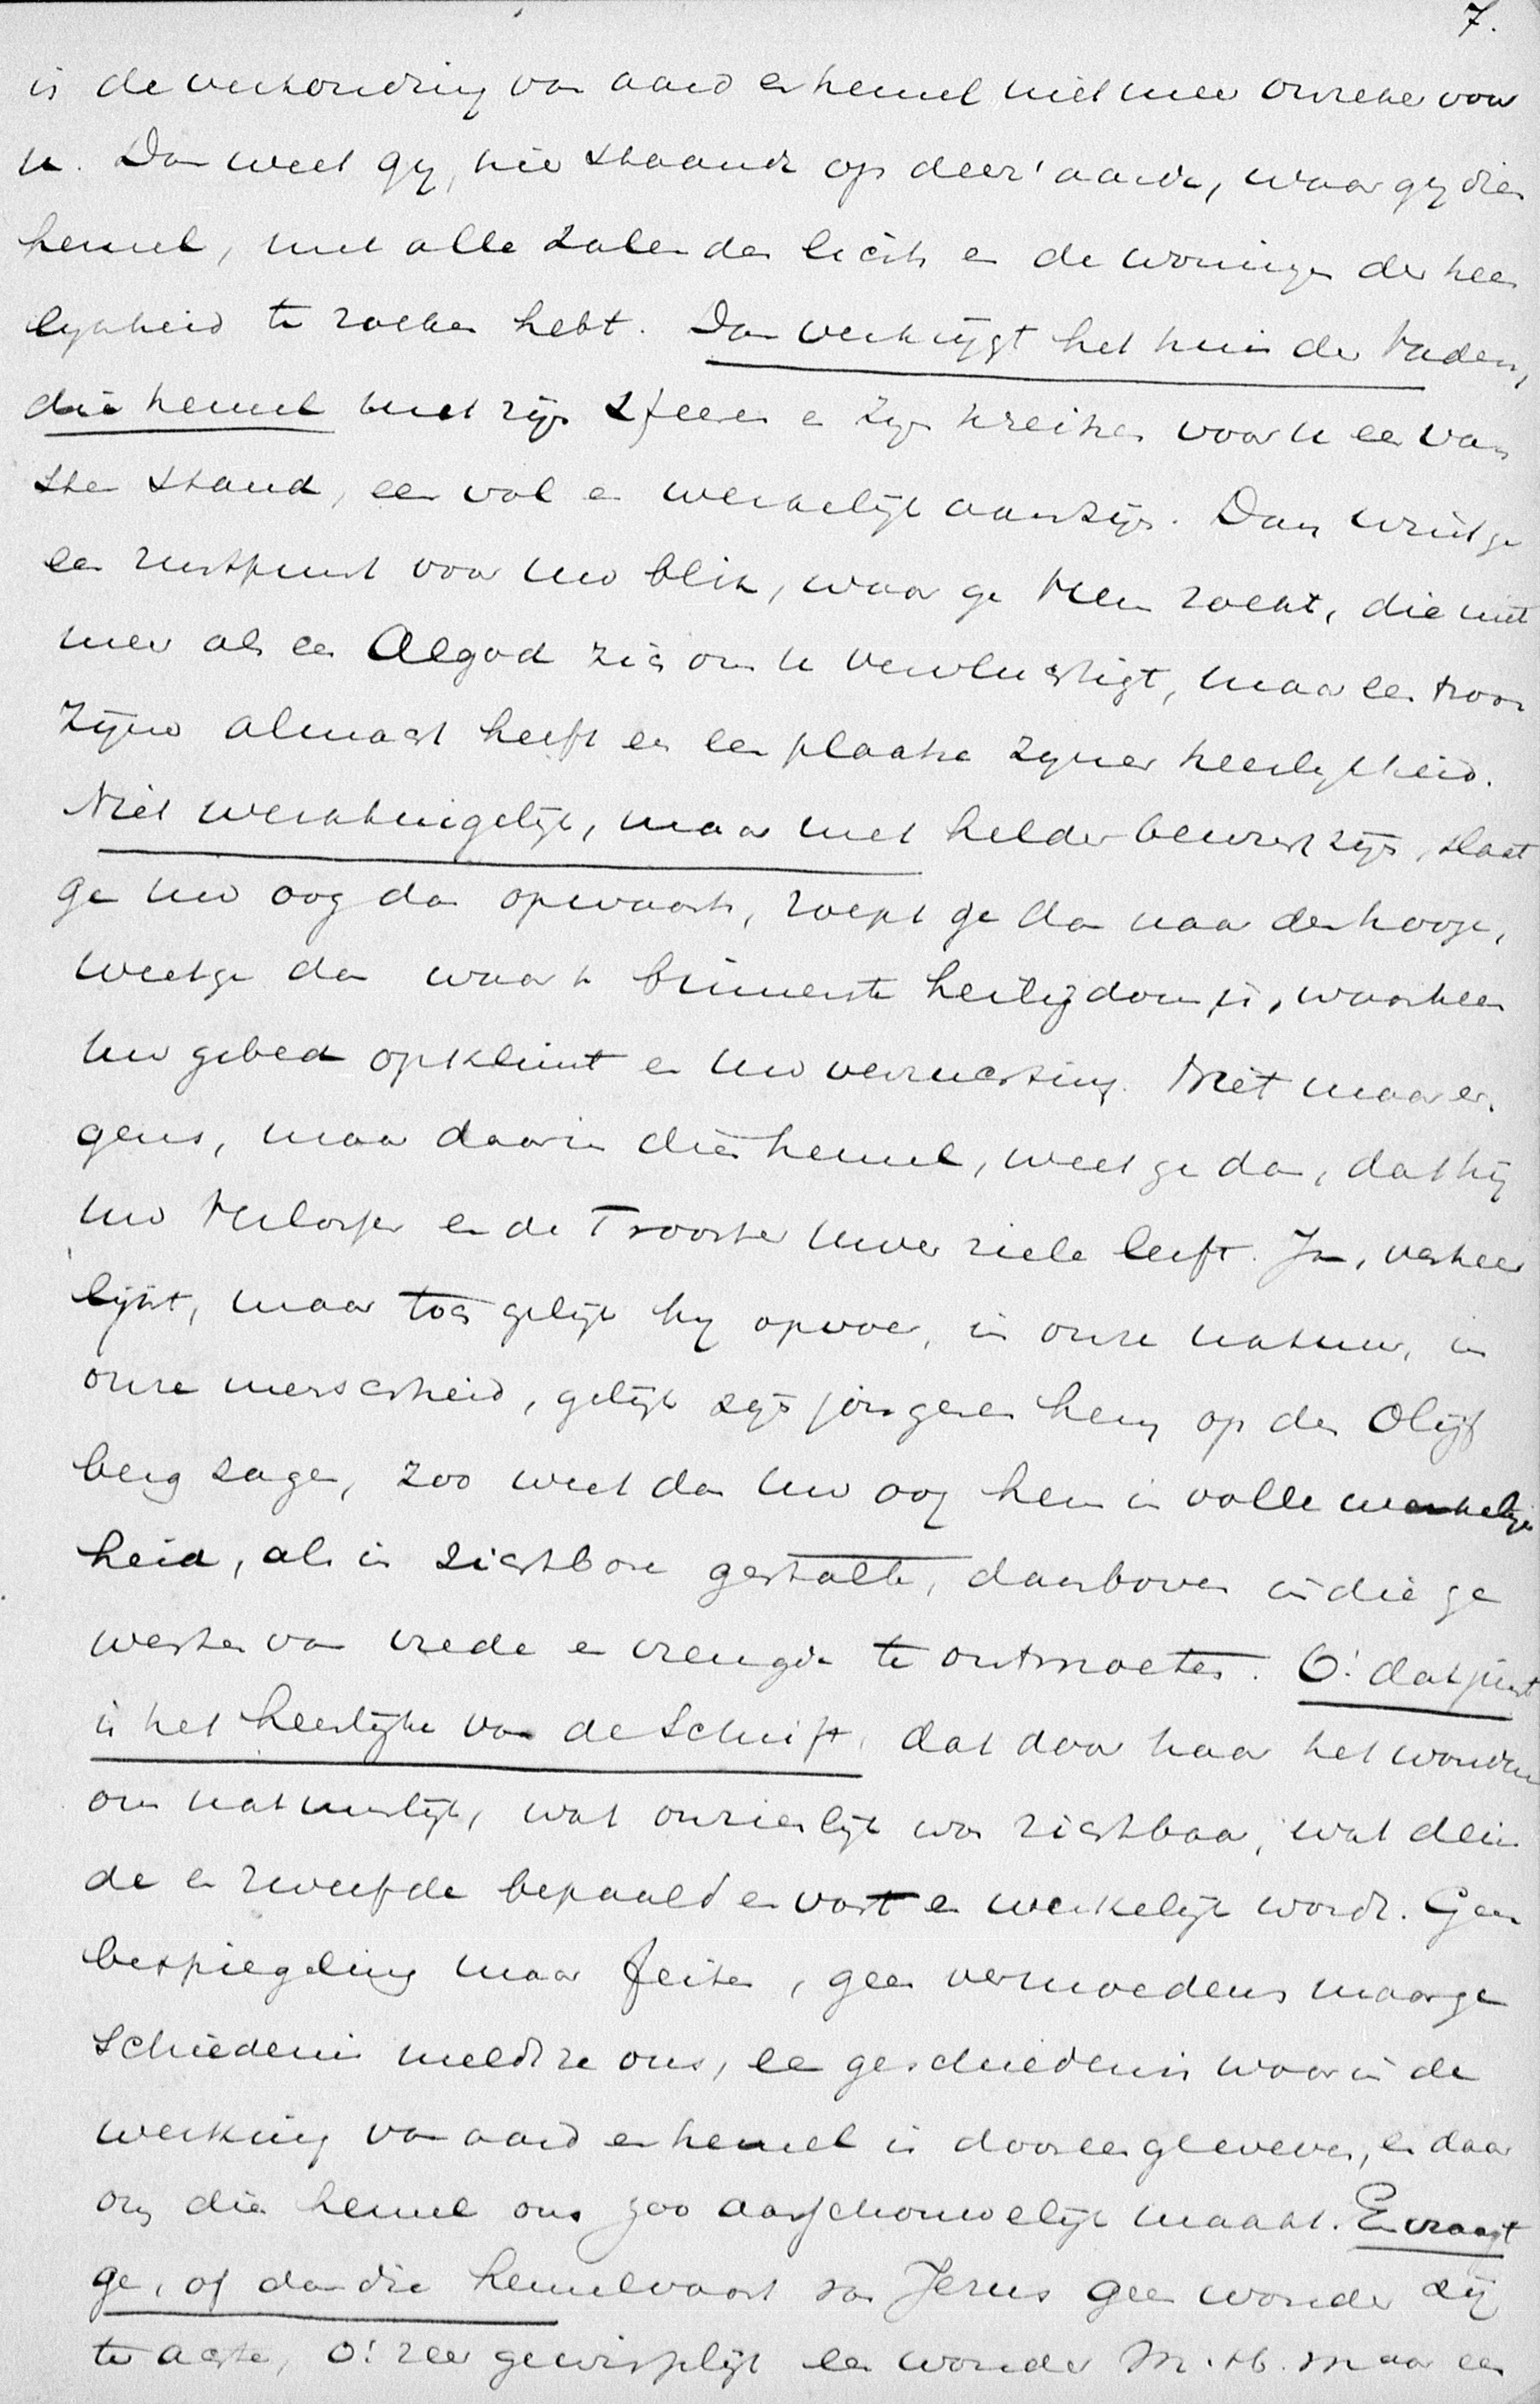 7.
is de verhouding van aard en hemel niet meer onzeker voor
u. Dan weet gij, hier staande op deez' aarde, waar gij dien
hemel, met alle zalen des lichts en de woningen der heer
lijkheid te zoeken hebt. Dan verkrijgt het huis des Vaders,
die hemel met zijn sfeeren en zijn kreitsen voor u een vas
ten stand, een vol en werkelijk aanzijn. Dan vindt ge
een rustpunt voor uw blik, waar ge Hem zoekt, die niet
meer als een Algod zich om u vervluchtigt, maar een troon
zijner almacht heeft en een plaatse zijner heerlijkheid.
Niet werktuigelijk, maar met helder bewustzijn, slaat
ge uw oog dan opwaarts, roept ge dan naar den hooge,
weet ge dan waar 't binnenste heiligdom is, waarheen
uw gebed opklimt en uw verzuchting. Niet maar er
gens, maar daar in dien hemel, weet ge dan, dat hij
uw Verlosser en de Trooster uwer ziele leeft. Ja, verheer
lijkt, maar toch gelijk hij opvoer, in onze natuur, in
onze menschheid, gelijk zijn jongeren hem op den Olijf
berg zagen, zoo weet dan uw oog hem in volle werkelijk
heid, als in zichtbare gestalte, daarboven in die ge
westen van vrede en vreugde te ontmoeten. O! dat juist
is het heerlijke van de Schrift, dat door haar het wonder
ons natuurlijk, wat onzienlijk was zichtbaar, wat dein
de en zweefde bepaald en vast en werkelijk wordt. Geen
bespiegeling maar feiten, geen vermoedens maar ge
schiedenis meldt ze ons, een geschiedenis waar in de
werking van aard en hemel is dooreengeweven, en daar
om dien hemel ons zoo aanschouwelijk maakt. En vraagt
ge, of dan die hemelvaart van Jezus geen wonder zij
te achten, o! zeer gewisselijk een wonder M. H. maar een